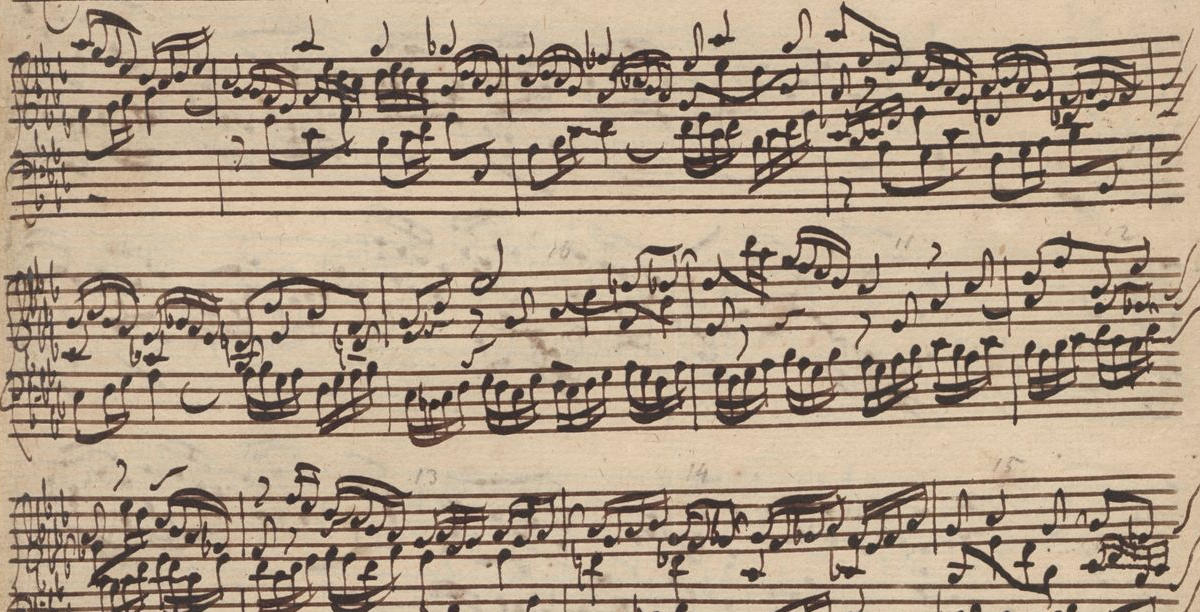 10 11 12
13 14 15